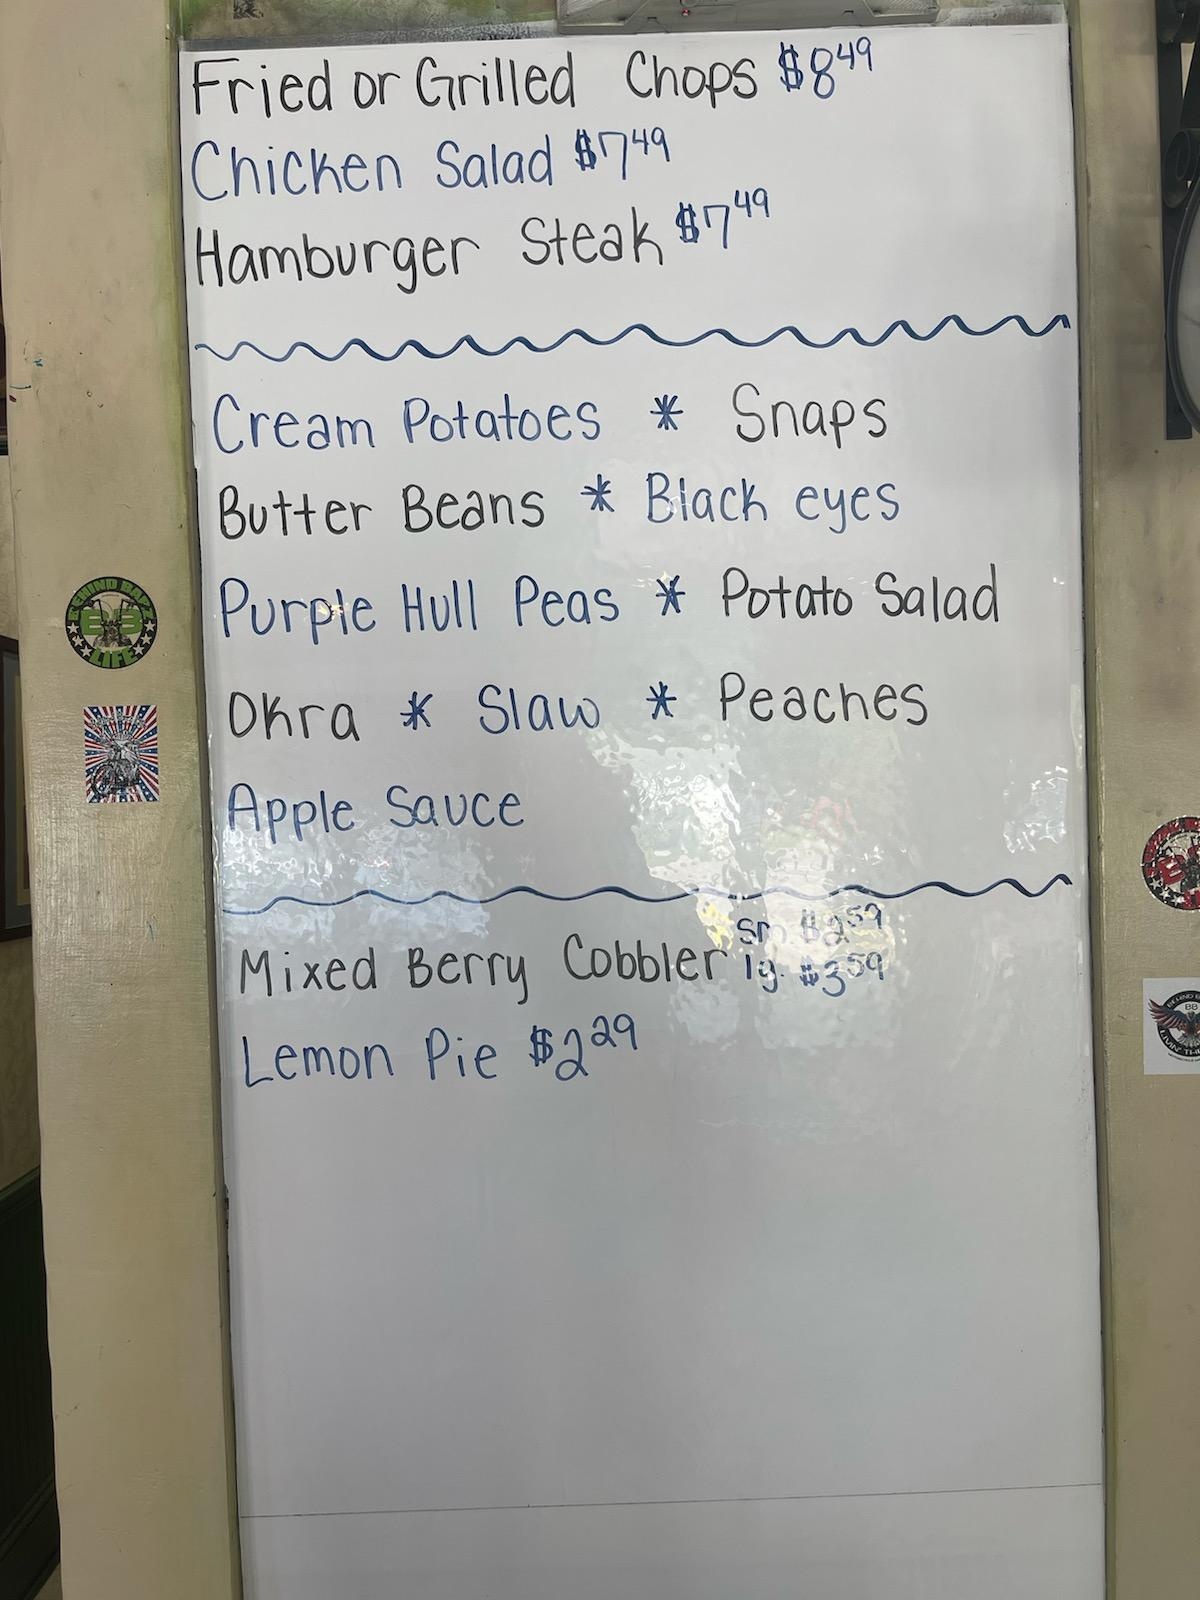 Fried or Grilled Chops $8.49
Chicken Salad $7.49
Hamburger Steak $7.49
Cream Potatoes * Snaps
Butter Beans * Black eyes
Purple Hull Peas * Potato Salad
Okra * Slaw * Peaches
Apple Sauce
Mixed Berry Cobbler sm $2.59
lg. $3.59
Lemon Pie $2.29
BEHIND BARZ
LIFE